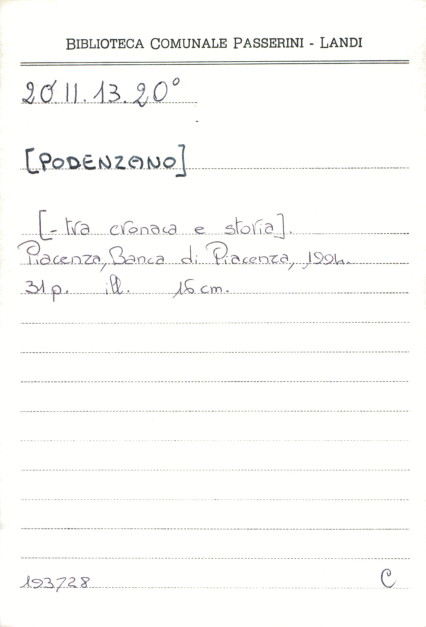 BIBLIOTECA COMUNALE PASSERINI - LANDI
20 II. 13. 20°
[PODENZANO]
[- tra cronaca e storia].
Piacenza, Banca di Piacenza, 1994.
31 p. ill. 16 cm.
193728 C